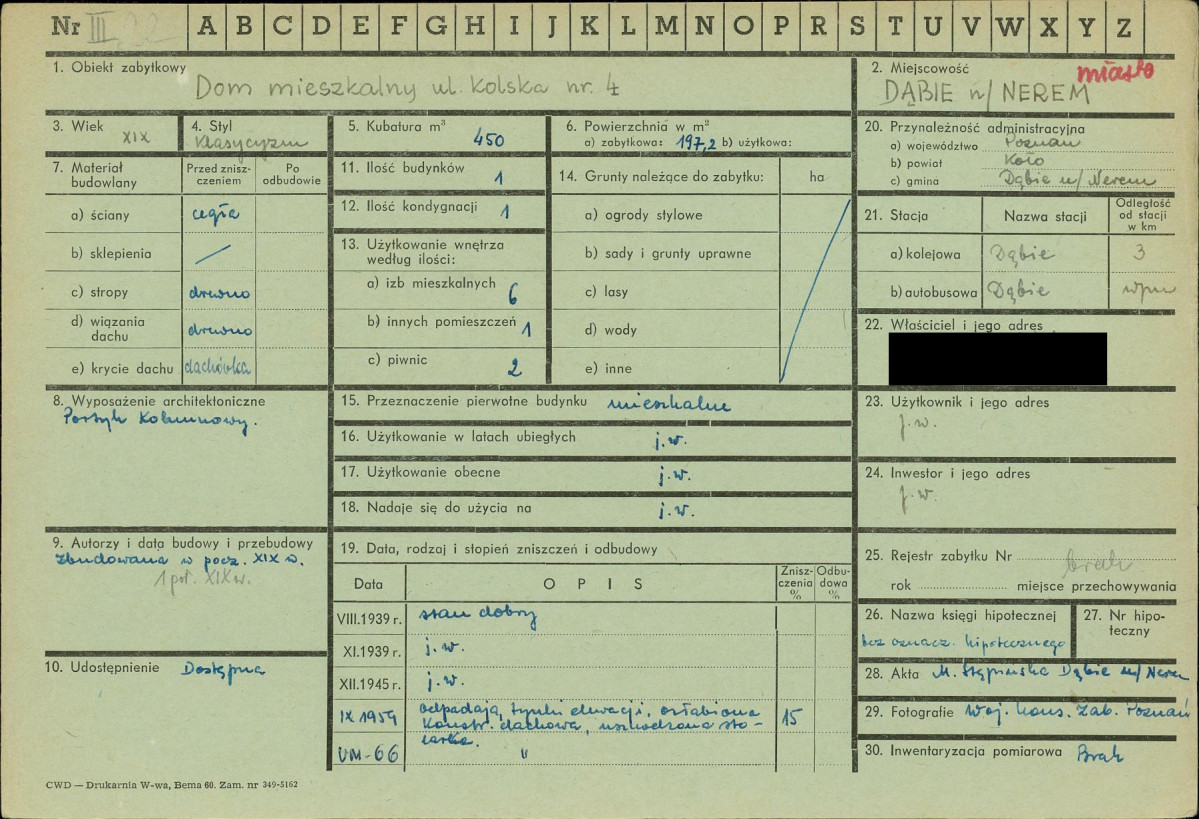 Nr III
A B C D E F G H I J K L M N O P R S T U V W X Y Z
1. Obiekt zabytkowy
Dom mieszkalny ul. Kolska nr. 4
2. Miejscowość
miasto
DĄBIE n/ NEREM
3. Wiek
XIX
4. Styl
Klasycyzm
5. Kubatura m³
450
6. Powierzchnia w m²
a) zabytkowa: 197,2 b) użytkowa:
20. Przynależność administracyjna
a) województwo Poznań
b) powiat Koło
c) gmina Dąbie n/ Nerem
7. Materiał budowlany
Przed zniszczeniem
Po odbudowie
a) ściany cegła
b) sklepienia /
c) stropy drewno
d) wiązania dachu drewno
e) krycie dachu dachówka
11. Ilość budynków 1
12. Ilość kondygnacji 1
13. Użytkowanie wnętrza według ilości:
a) izb mieszkalnych 6
b) innych pomieszczeń 1
c) piwnic 2
14. Grunty należące do zabytku: ha
a) ogrody stylowe
b) sady i grunty uprawne
c) lasy
d) wody
e) inne
21. Stacja Nazwa stacji Odległość od stacji w km
a) kolejowa Dąbie 3
b) autobusowa Dąbie
22. Właściciel i jego adres
8. Wyposażenie architektoniczne
Portyk Kolumnowy.
15. Przeznaczenie pierwotne budynku mieszkalne
16. Użytkowanie w latach ubiegłych j.w.
17. Użytkowanie obecne j.w.
18. Nadaje się do użycia na j.w.
23. Użytkownik i jego adres
j.w.
24. Inwestor i jego adres
j.w.
9. Autorzy i data budowy i przebudowy
zbudowana w pocz. XIX w.
1 poł. XIX w.
19. Data, rodzaj i stopień zniszczeń i odbudowy
Data OPIS Zniszczenia % Odbudowa %
VIII.1939 r. stan dobry
XI.1939 r. j.w.
XII.1945 r. j.w.
IX 1959 odpadają tynki elewacji, osłabiona 15
konstr. dachowa, uszkodzona sto-
larka.
VIII-66 "
25. Rejestr zabytku Nr brak
rok miejsce przechowywania
26. Nazwa księgi hipotecznej
bez oznacz. hipotecznego
27. Nr hipoteczny
10. Udostępnienie Dostępna
28. Akta M. Stępińska Dąbie n/ Nerem
29. Fotografie Woj. Kons. Zab. Poznań
30. Inwentaryzacja pomiarowa Brak
CWD — Drukarnia W-wa, Bema 60. Zam. nr 349-5162